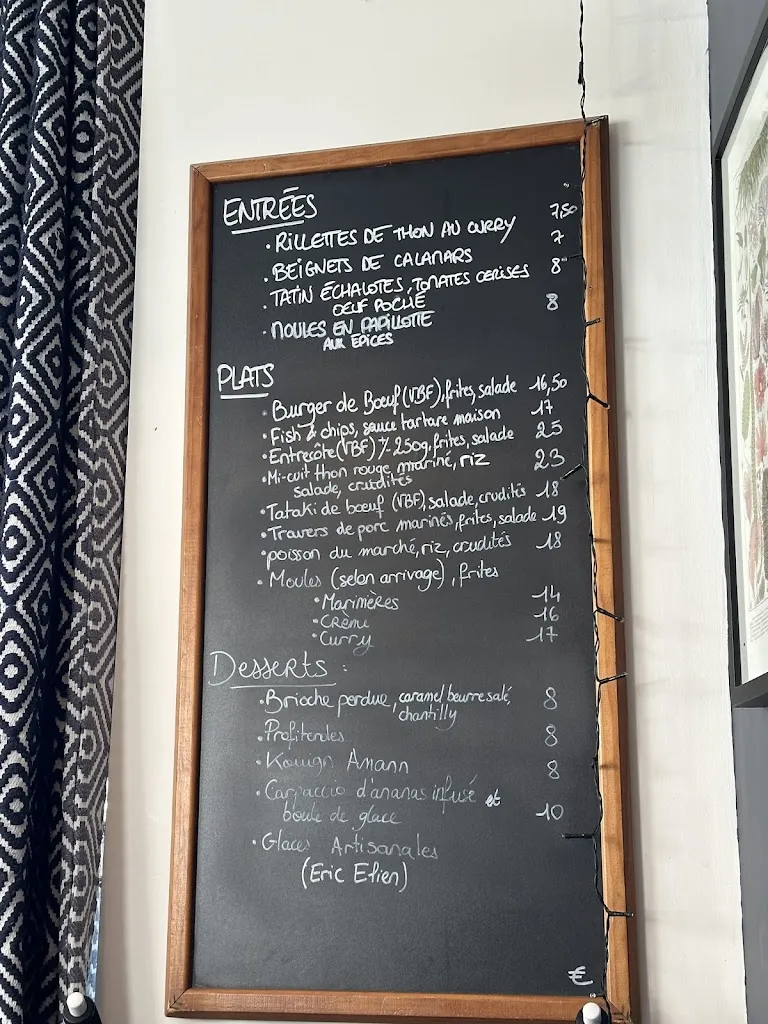 ENTRÉES
· RILLETTES DE THON AU CURRY 7,50
· BEIGNETS DE CALAMARS 7
· TATIN ÉCHALOTES, TOMATES CERISES 8
OEUF POCHÉ
· MOULES EN PAPILLOTE 8
AUX ÉPICES
PLATS
· Burger de Boeuf (VBF), frites, salade 16,50
· Fish & chips, sauce tartare maison 17
· Entrecôte (VBF) +/- 250g, frites, salade 25
· Mi-cuit thon rouge mariné, riz 23
salade, crudités
· Tataki de boeuf (VBF), salade, crudités 18
· Travers de porc marinés, frites, salade 19
· poisson du marché, riz, crudités 18
· Moules (selon arrivage), frites
· Marinières 14
· Crème 16
· Curry 17
Desserts :
· Brioche perdue, caramel beurre salé, 8
chantilly
· Profiteroles 8
· Kouign Amann 8
· Carpaccio d'ananas infusé et
boule de glace 10
· Glaces Artisanales
(Eric Elien)
€